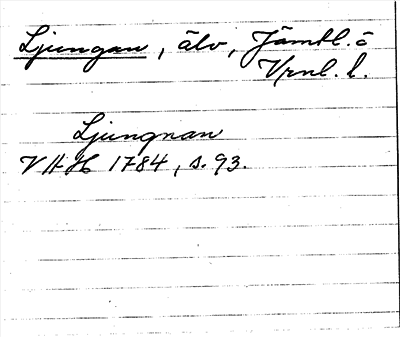 Ljungan, älv, Jämtl. o
Vrnl. l.
Ljungnan
VAH 1784, s. 93.